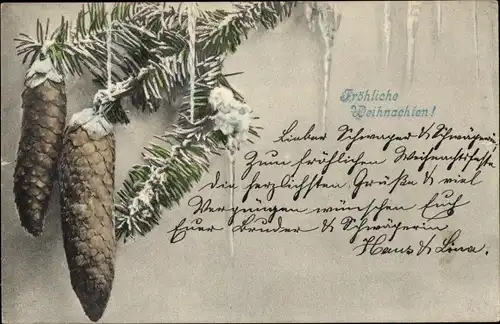 Fröhliche
Weihnachten!
Lieber Schwager & Schwägerin
Zum fröhlichen Weihnachtsfeste
die herzlichsten Grüße & viel
Vergnügen wünschen Euch
Euer Bruder & Schwägerin
Hans & Lina.